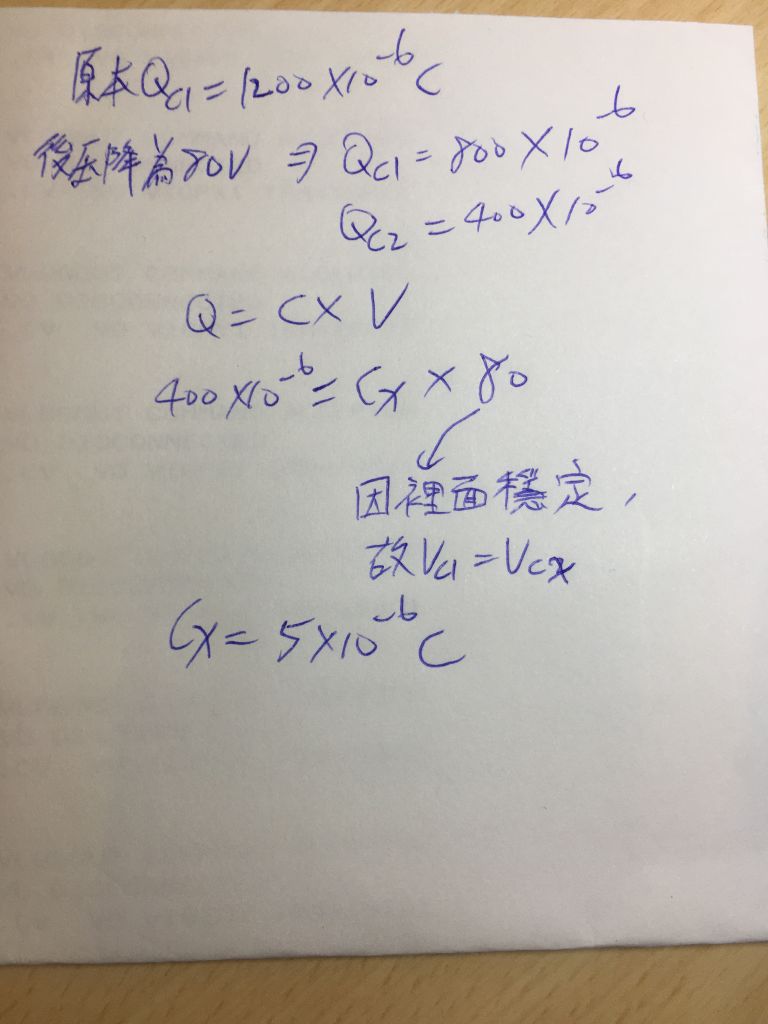 原本 Qc1 = 1200 × 10⁻⁶ C
後壓降為80V ⇒ Qc1 = 800 × 10⁻⁶
Qc2 = 400 × 10⁻⁶
Q = C × V
400 × 10⁻⁶ = Cx × 80
因裡面穩定,
故 Vc1 = Vcx
Cx = 5 × 10⁻⁶ C